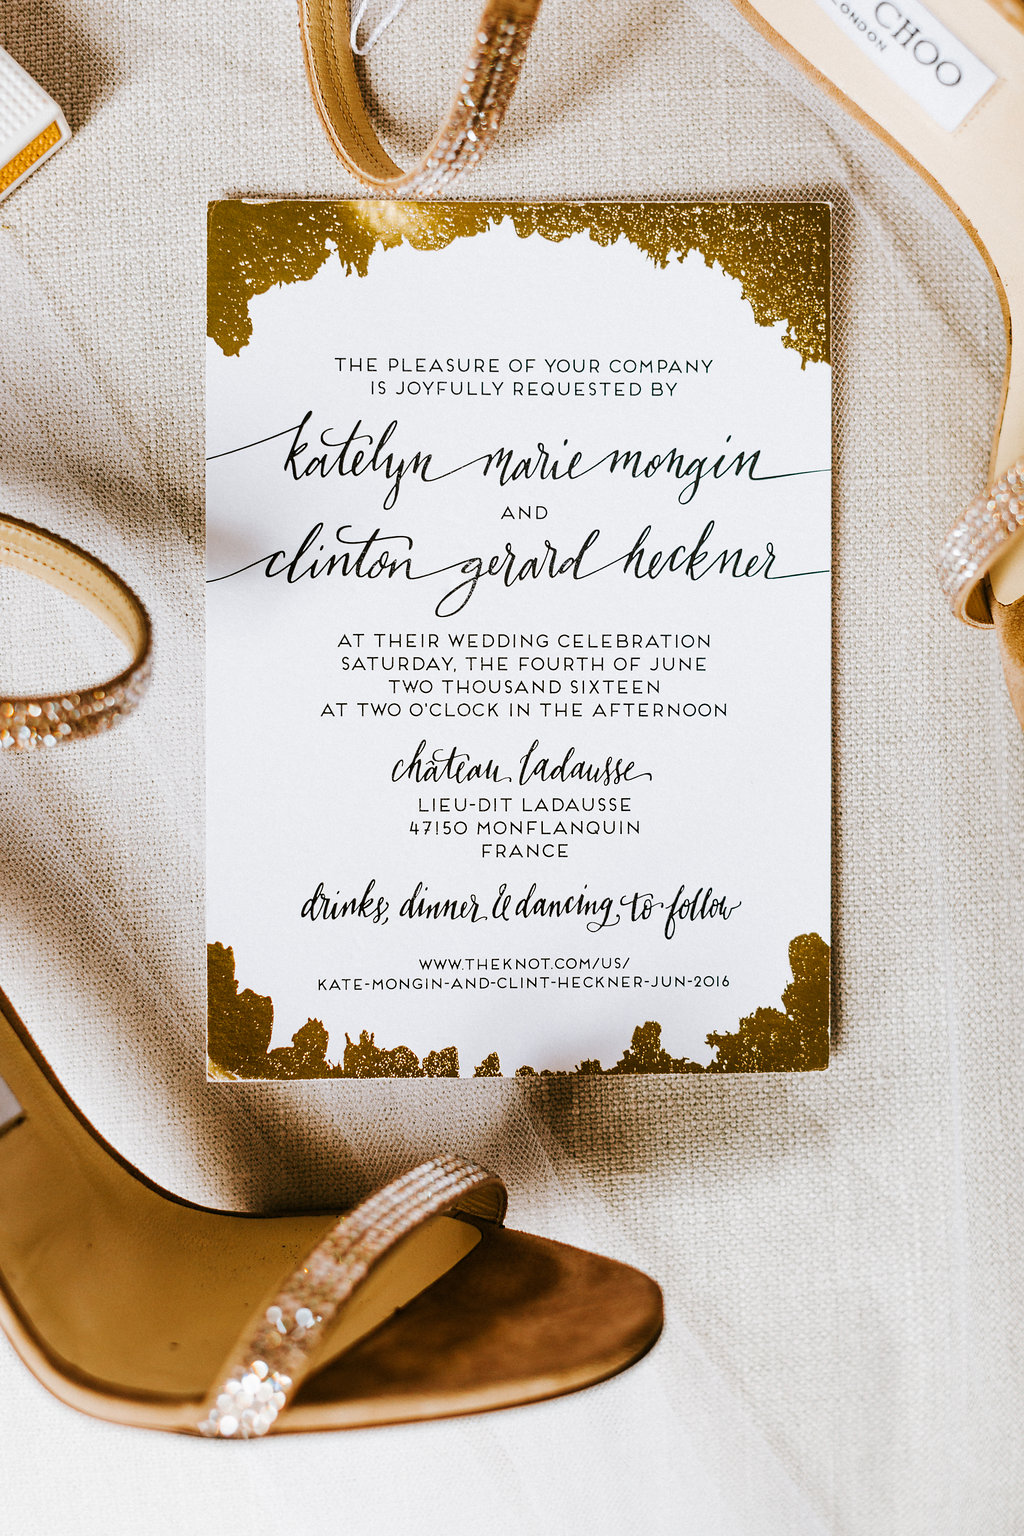 CHOO
LONDON
THE PLEASURE OF YOUR COMPANY
IS JOYFULLY REQUESTED BY
katelyn marie mongin
AND
clinton gerard heckner
AT THEIR WEDDING CELEBRATION
SATURDAY, THE FOURTH OF JUNE
TWO THOUSAND SIXTEEN
AT TWO O'CLOCK IN THE AFTERNOON
château ladausse
LIEU-DIT LADAUSSE
47150 MONFLANQUIN
FRANCE
drinks, dinner & dancing to follow
WWW.THEKNOT.COM/US/
KATE-MONGIN-AND-CLINT-HECKNER-JUN-2016